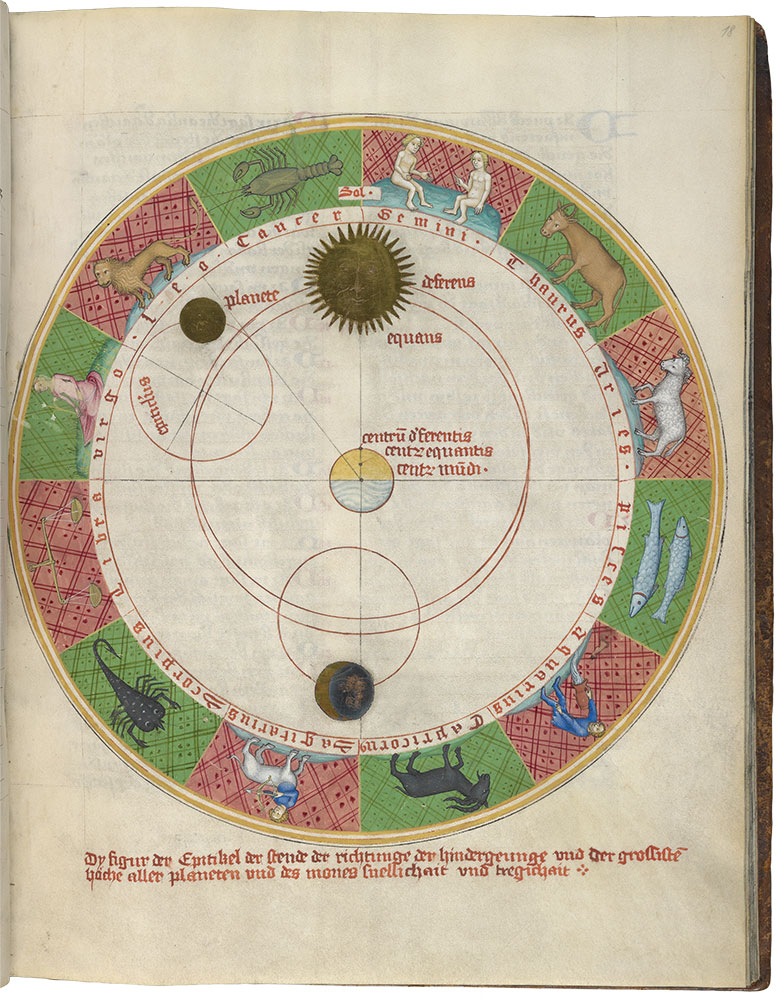 18
Sol.
Cancer
Gemini.
Thaurus
Aries.
Pisces
Aquarius
Capricorn9
Sagitarius
Scorpius
Libra
virgo.
leo.
planete
deferens
equans
epiciclus
centrū d'ferentis
centr equantis
centr mūdi.
Dy figur der Epitikel der stende der richtunge der hindergeunge vnd der grossistē
höche aller planeten vnd des mones snellichait vnd tregichait